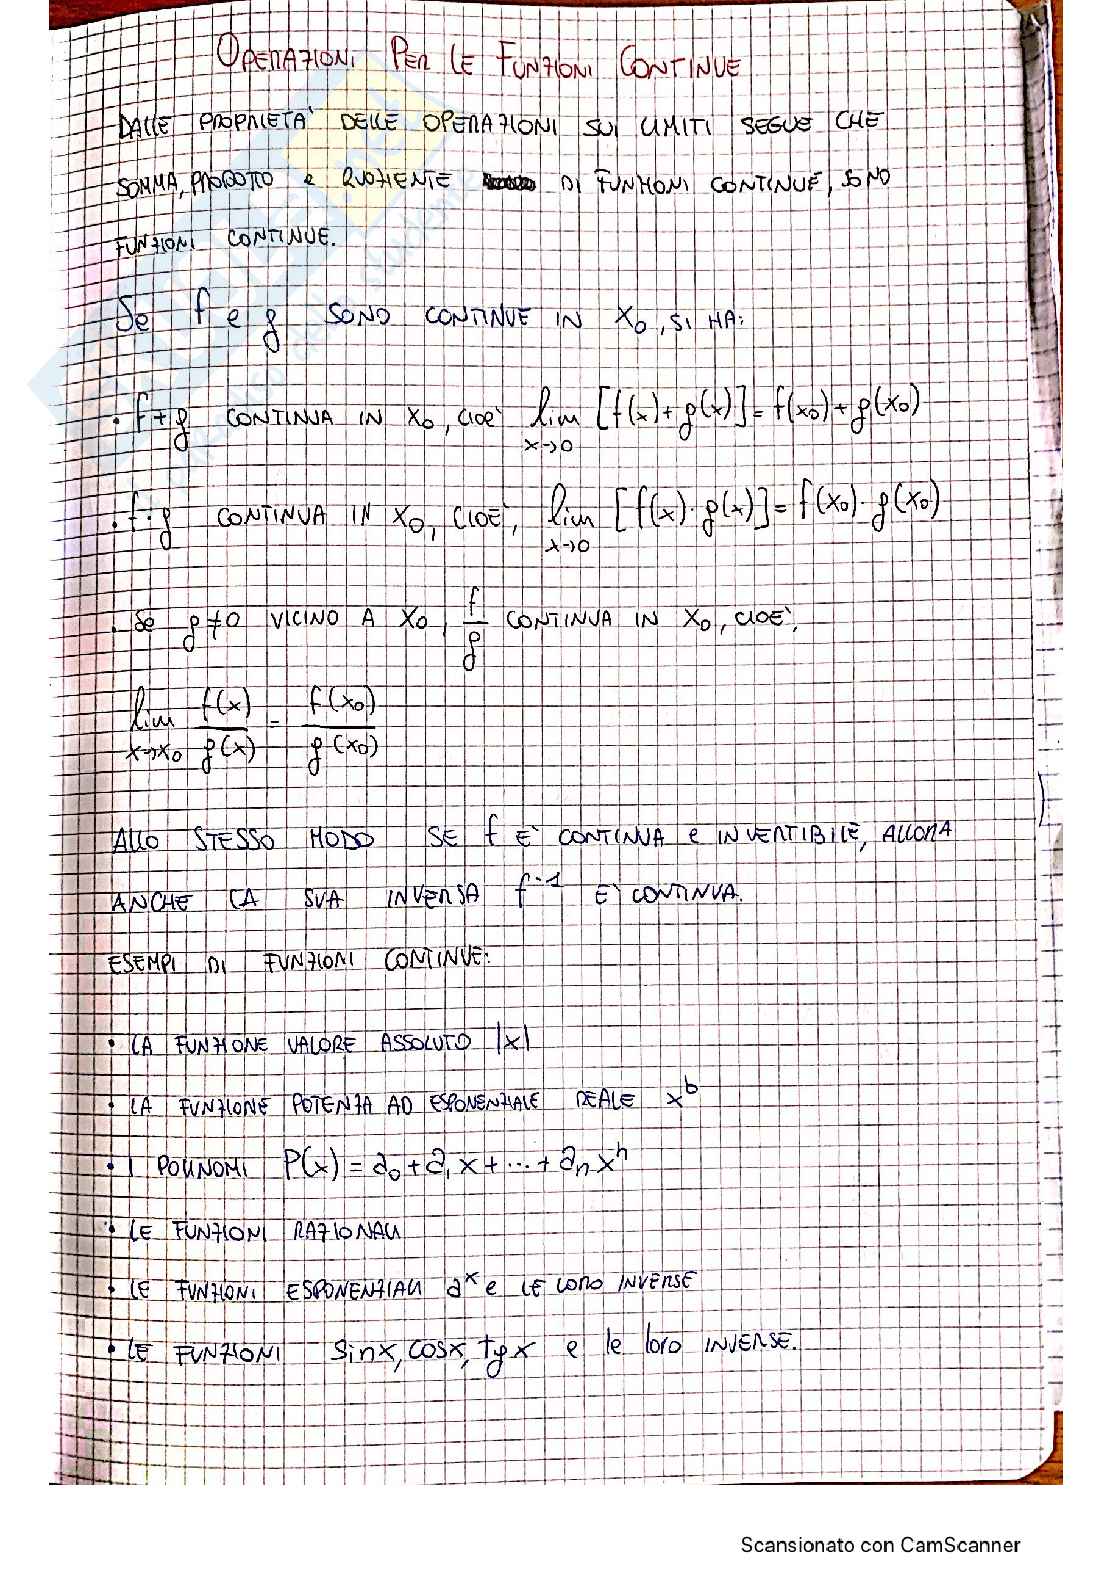 OPERAZIONI PER LE FUNZIONI CONTINUE
DALLE PROPRIETA' DELLE OPERAZIONI SUI LIMITI SEGUE CHE
SOMMA, PRODOTTO e QUOZIENTE DI FUNZIONI CONTINUE, SONO
FUNZIONI CONTINUE.
Se f e g SONO CONTINUE IN x₀, SI HA:
· f+g CONTINUA IN x₀, CIOE' lim x→0 [f(x)+g(x)]=f(x₀)+g(x₀)
· f·g CONTINUA IN x₀, CIOE', lim x→0 [f(x)·g(x)]=f(x₀)·g(x₀)
· Se g≠0 VICINO A x₀, f/g CONTINUA IN x₀, CIOE',
lim x→x₀ f(x)/g(x) = f(x₀)/g(x₀)
ALLO STESSO MODO SE f E' CONTINUA e INVERTIBILE, ALLORA
ANCHE LA SUA INVERSA f⁻¹ E' CONTINUA.
ESEMPI DI FUNZIONI CONTINUE:
· LA FUNZIONE VALORE ASSOLUTO |x|
· LA FUNZIONE POTENZA AD ESPONENZIALE REALE xᵇ
· I POLINOMI P(x)=a₀+a₁x+...+aₙxⁿ
· LE FUNZIONI RAZIONALI
· LE FUNZIONI ESPONENZIALI aˣ e LE LORO INVERSE
· LE FUNZIONI sinx, cosx, tgx e le loro INVERSE.
Scansionato con CamScanner